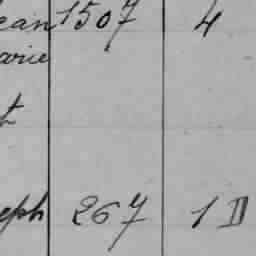 ean 1507 4
arie
t
eph 267 1 D